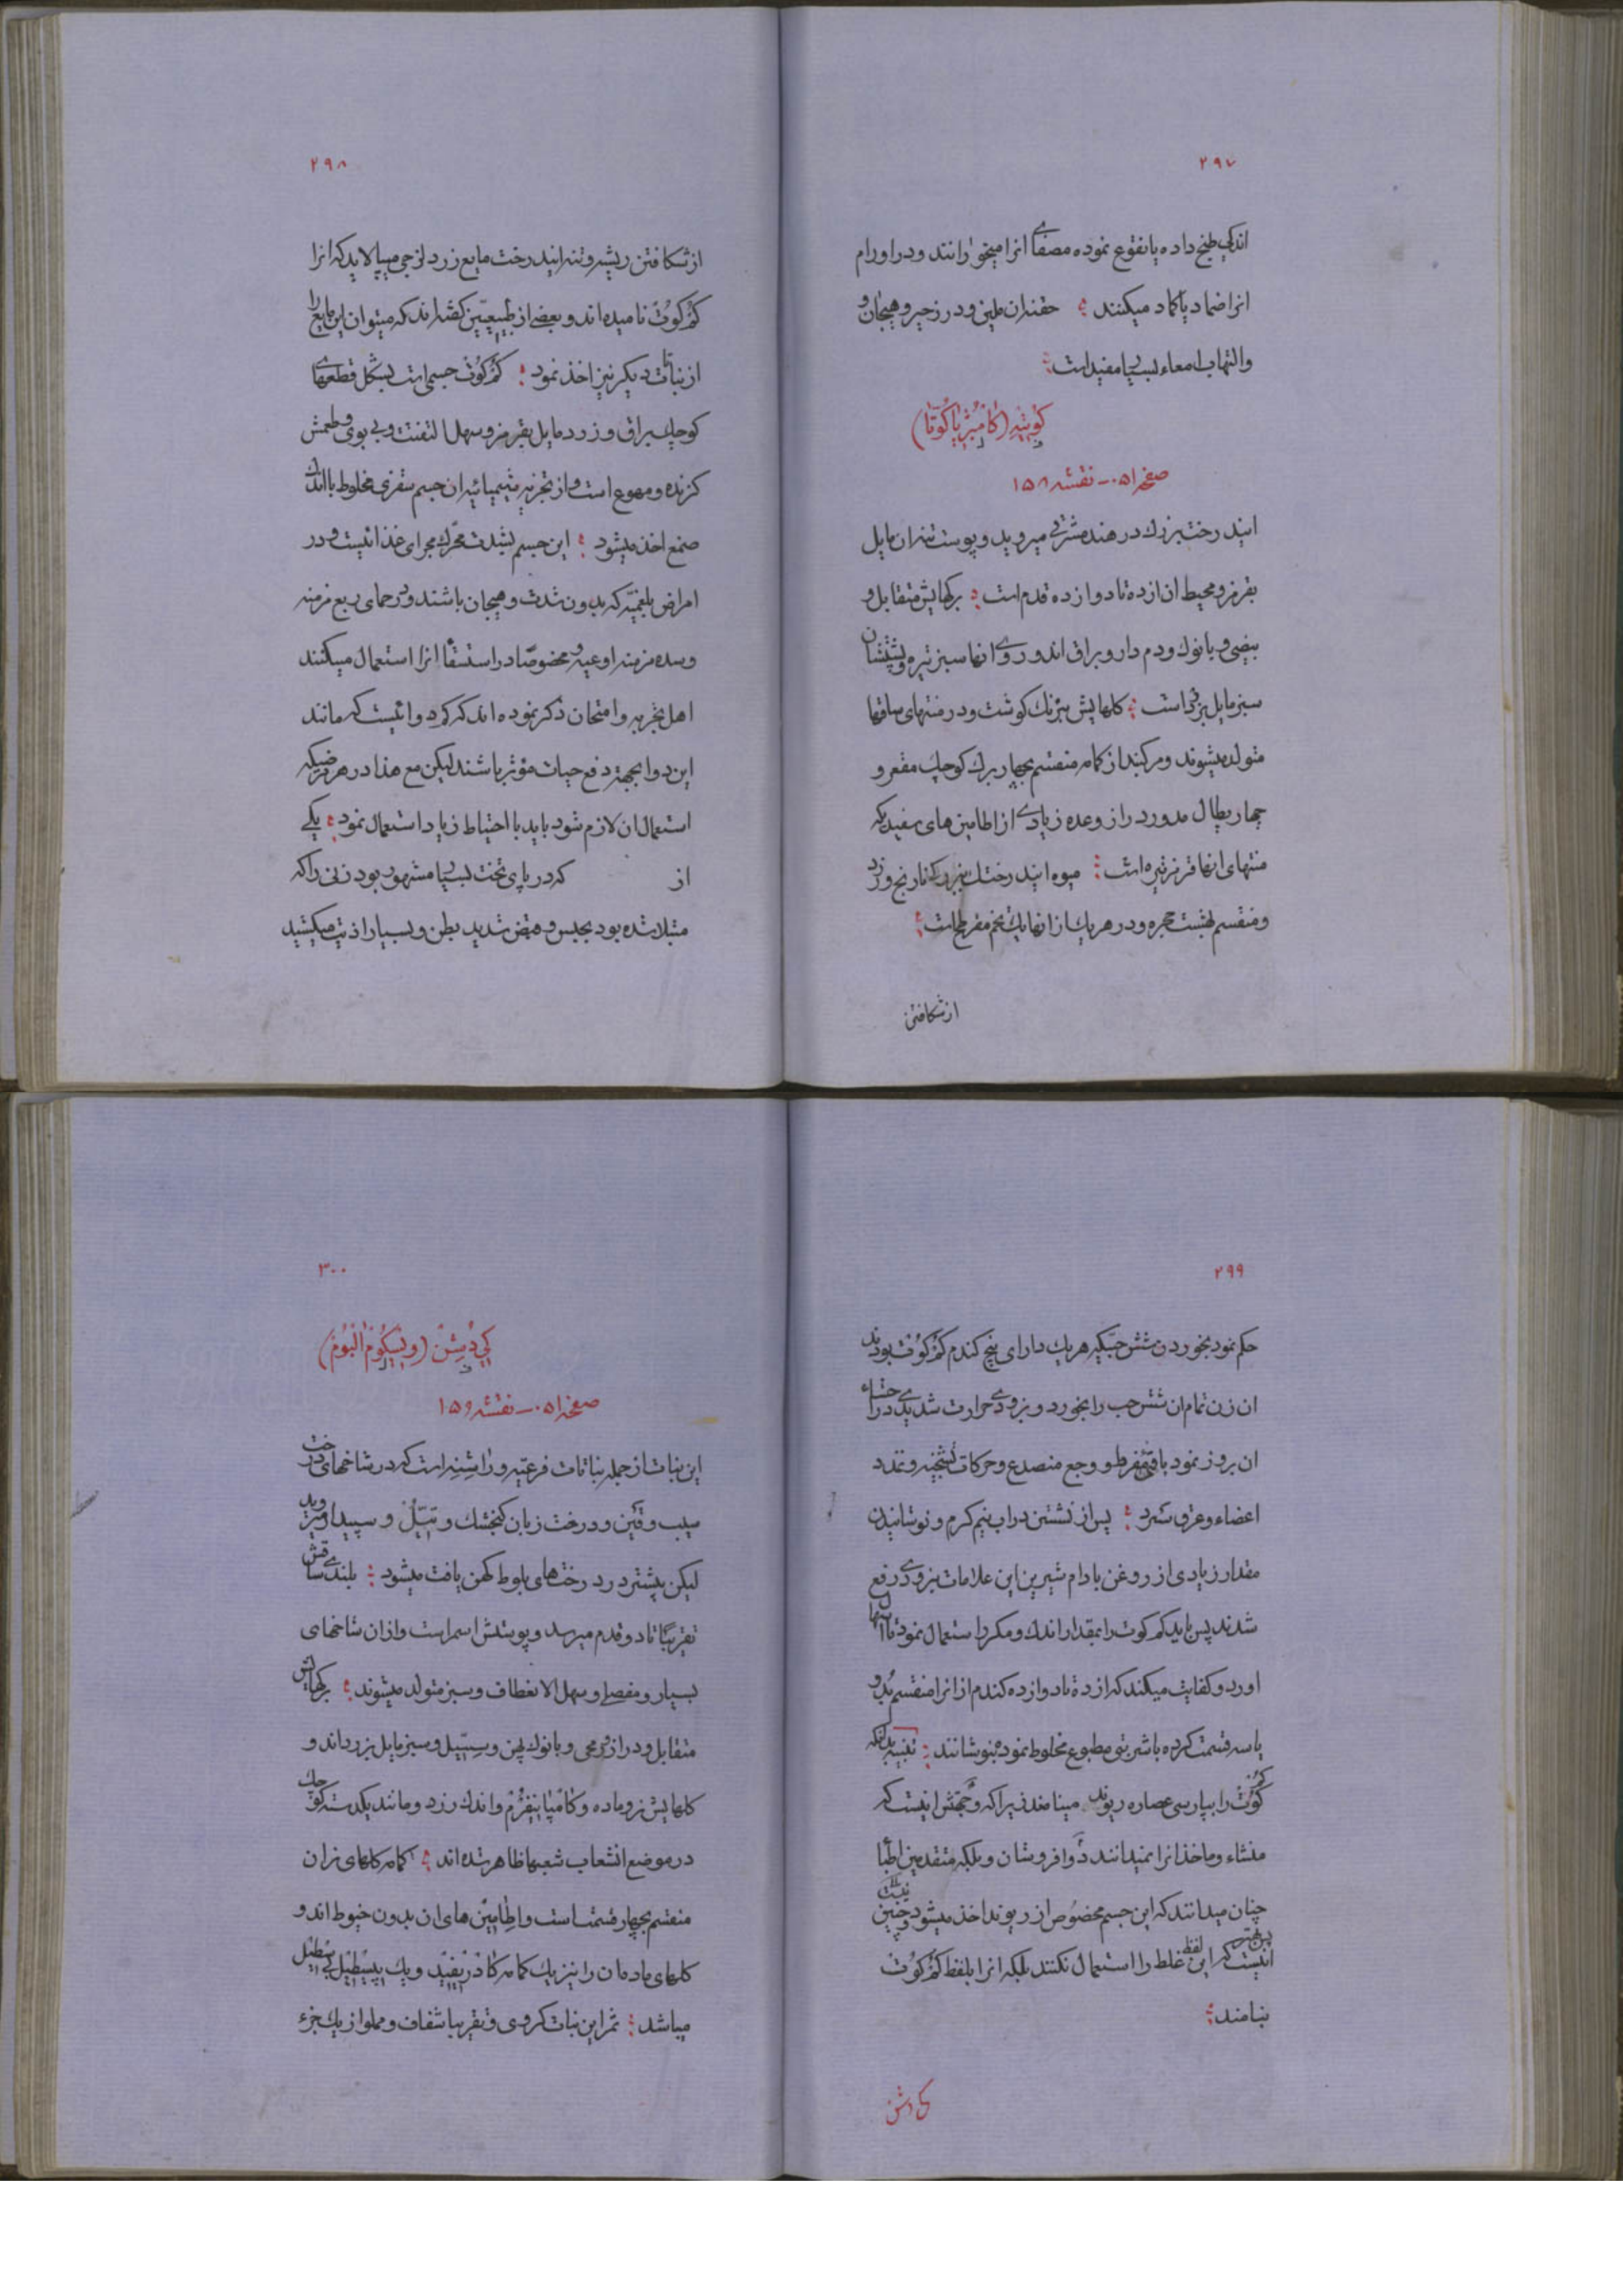 ۲۹۷
اندکی طبخ داده یا نقوع نموده مصفای انرا میخورانند و در اورام
انرا ضماد یا کماد میکنند حقنه ان ملین و در زحیر و هیجان و
والتهاب امعاء بسیار مفید است
کوییه (کامبژیا کوتا)
صفحه ۰۵۱ - نقشه ۱۵۸
ایندرخت بزرك در هند مشرقی میروید و پوست تنه ان مایل
بقرمز و محیط ان از ده تا دوازده قدم است برکهایش متقابل و
بیضی و با نوك و دم دار و براق اند و روی انها سبز تیره و پشتشان
سبز مایل بزرد است کلهایش برنك کوشت و در منتهای ساقها
متولد میشوند و مرکبند از کامه منقسم بچهار برك کوچك مقعر و
چهار پطال مدور دراز و عده زیادی از اطامین های سفید که
منتهای انها قرمز تیره است میوه ایندرخت بزرکی نارنج و زرد
و منقسم بهشت حجره و در هر یك از انها یك تخم مفرطح است
ازشکافتن
۲۹۸
ازشکافتن ریشه و تنه ایندرخت مایع زرد لزجی میپالاید که انرا
کم کوت نامیده اند و بعضی از طبیعیین کفته اند که میتوان این مایع را
از نباتات دیکر نیز اخذ نمود کم کوت جسمی است بشکل قطعهای
کوچك براق و زرد مایل بقرمز و سهل التفتت و بی بوی و طعمش
کزنده و مهوع است و از تجزیه شیمیائیه ان جسم سقزی مخلوط با اندك
صمغ اخذ میشود این جسم بشدت محرك مجرای غذائیست و در
امراض بلغمیه که بدون شدت و هیجان باشند و در حمای ربع مزمنه
و سده مزمنه اوعیه و مخصوصا در استسقا انرا استعمال میکنند
اهل تجربه و امتحان ذکر نموده اند که کم دوائیست که مانند
این دوا بجهة دفع حیات مؤثر باشند لیکن مع هذا در هر مرضیکه
استعمال ان لازم شود باید با احتیاط زیاد استعمال نمود یکی
از که در پای تخت بسیار مشهور بود زنی را که
مبتلا شده بود بحبس و قبض شدید بطن و بسیار اذیت میکشید
۲۹۹
حکم نمود بخوردن شش حبیکه هر یك دارای پنج کندم کم کوت بودند
ان زن تمام ان شش حب را بخورد و بزودی حرارت شدیدی در احشاء
ان بروز نمود با قئ مفرط و وجع منصدع و حرکات تشنجیه و تمدد
اعضاء و عرق سرد پس از نشستن در اب نیم کرم و نوشانیدن
مقدار زیادی از روغن بادام شیرین این علامات بزودی رفع
شدند پس باید کم کوت را بمقدار اندك و مکرر استعمال نمود تا اسهال
اورد و کفایت میکند که از ده تا دوازده کندم از انرا منقسم بدو
یا سه قسمت کرده با شربتی مطبوع مخلوط نموده بنوشانند تنبیه بدانکه
کم کوت را بپارسی عصاره ریوند مینامند زیرا که وجهش اینست که
منشاء و ماخذ انرا نمیدانند دوا فروشان و بلکه متقدمین اطبا
چنان میدانند که این جسم مخصوص از ریوند اخذ میشود و چنین نیست
پس بهتر انیست که این لفظ غلط را استعمال نکنند بلکه انرا بلفظ کم کوت
بنامند
کی دشن
۳۰۰
کی دشن (ویسکوم البوم)
صفحه ۰۵۱ - نقشه ۱۵۹
این نبات از جمله نباتات فرعیه و راشنه است که در شاخهای درخت
سیب و قین و درخت زبان کنجشك و تیل و سپیدار میروید
لیکن بیشتر در درختهای بلوط کهن یافت میشود بلندی ساقش
تقریبا تا دو قدم میرسد و پوستش اسمر است و ازان شاخهای
بسیار و مفصلی و سهل الانعطاف و سبز متولد میشوند برکهایش
متقابل و دراز رمحی و با نوك پهن و سسیل و سبز مایل بزرد اند و
کلهایش نر و ماده و کامپانیفرم و اندك زرد و مانند یکدسته کوچك
در موضع انشعاب شعبها ظاهر شده اند کامه کلهای نران
منقسم بچهار قسمت است و اطامین های ان بدون خیوط اند و
کلهای مادهان را نیز یك کامه کادریفید و یك پیسطیل بی اسطیل
میباشد ثمر این نبات کروی و تقریبا شفاف و مملو از یك جزء